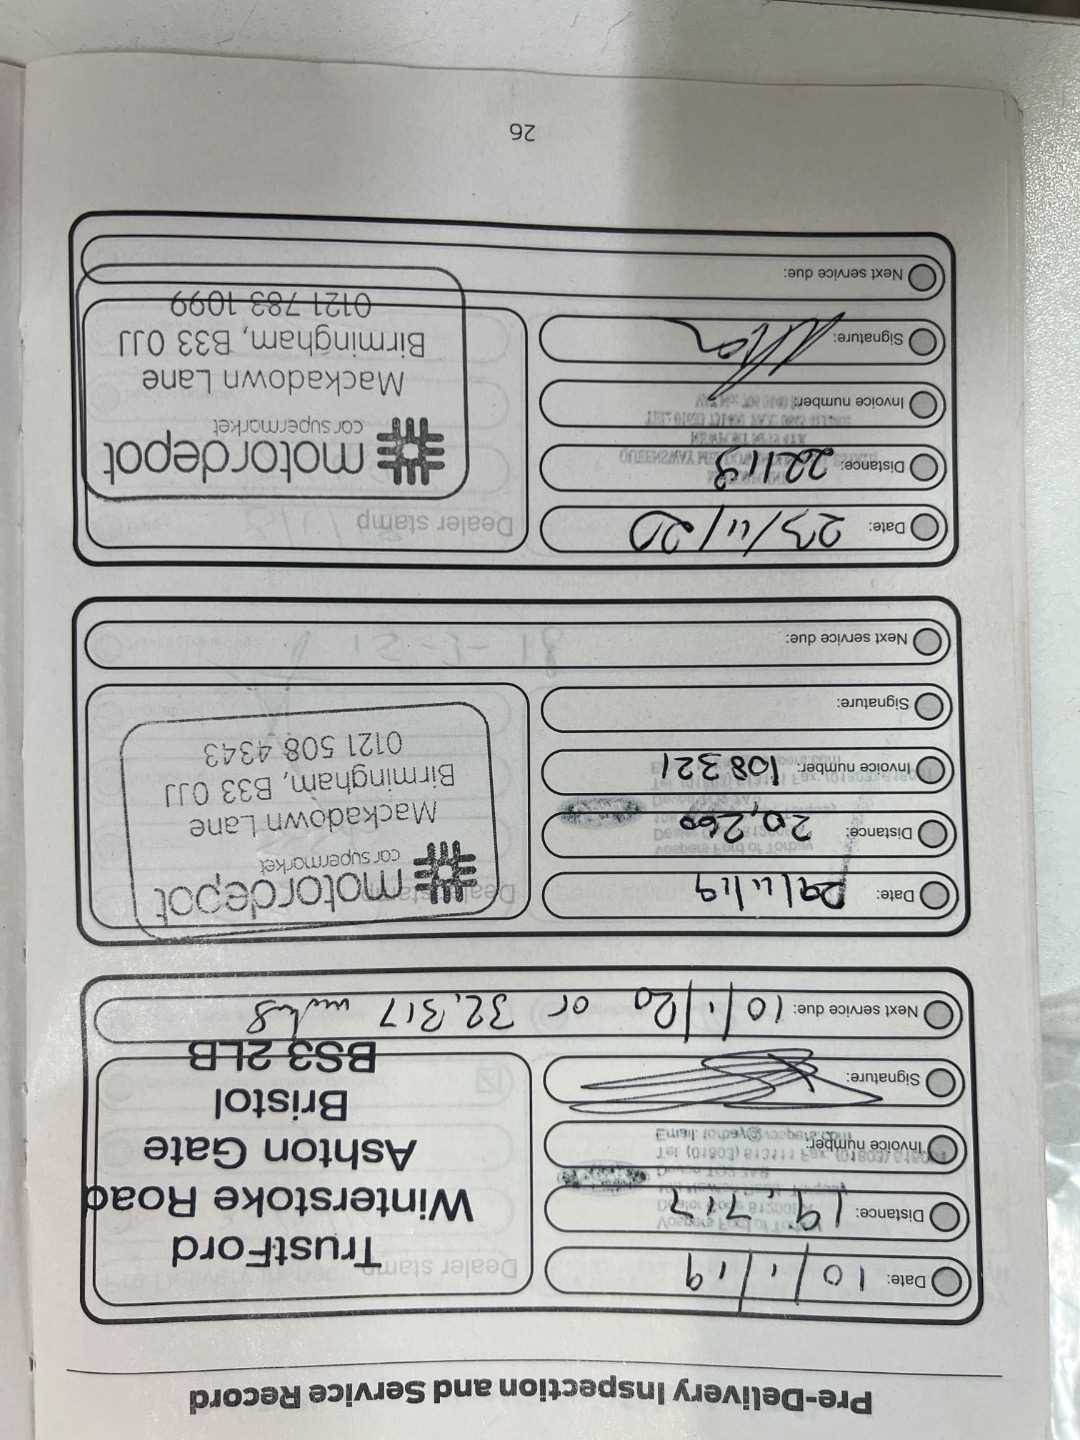 Pre-Delivery Inspection and Service Record
Date: 10/1/19
Distance: 19,717
Invoice number:
Signature:
Next service due: 10/1/20 or 32,317 miles
Dealer stamp
TrustFord
Winterstoke Road
Ashton Gate
Bristol
BS3 2LB
Date: 29/11/19
Distance: 20,260
Invoice number: 108321
Signature:
Next service due:
Dealer stamp
motordepot
car supermarket
Mackadown Lane
Birmingham, B33 0JJ
0121 508 4343
Date: 23/11/20
Distance: 22113
Invoice number:
Signature:
Next service due:
Dealer stamp
motordepot
car supermarket
Mackadown Lane
Birmingham, B33 0JJ
0121 783 1099
26